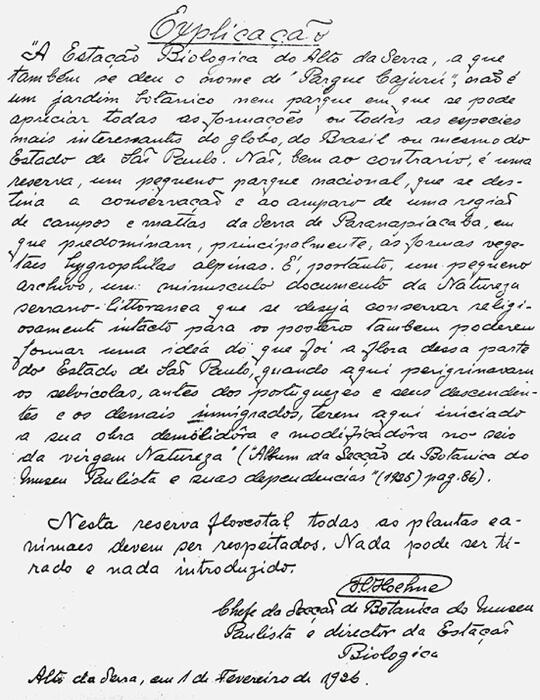 Explicação
"A Estação Biologica do Alto da Serra, a que
também se deu o nome de "Parque Cajurú", não é
um jardim botanico nem parque em que se pode
apreciar todas as formações ou todas as especies
mais interessantes do globo, do Brasil ou mesmo do
Estado de São Paulo. Não, bem ao contrario, é uma
reserva, um pequeno parque nacional, que se des-
tina a conservação e ao amparo de uma região
de campos e mattas da Serra de Paranapiacaba, em
que predominam, principalmente, as formas vege-
taes hygrophilas alpinas. É, portanto, um pequeno
archivo, um minusculo documento da Natureza
serrano-littoranea que se deseja conservar religi-
osamente intacto para os posteros tambem poderem
formar uma idéa do que foi a flora dessa parte
do Estado de São Paulo, quando aqui perigrinavam
os selvicolas, antes dos portuguezes e seus descenden-
tes e os demais immigrados, terem aqui iniciado
a sua obra demolidôra e modificadôra no seio
da virgem Natureza" ("Album da Secção de Botanica do
Museu Paulista e suas dependencias" (1925) pag. 86).
Nesta reserva florestal todas as plantas e a-
nimaes devem ser respeitados. Nada pode ser ti-
rado e nada introduzido.
FCHoehne
Chefe da Secção de Botanica do Museu
Paulista e director da Estação
Biologica
Alto da Serra, em 1 de Fevereiro de 1926.